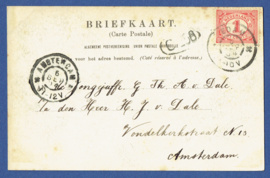 BRIEFKAART.
(Carte Postale)
ALGEMEENE POSTVEREENIGING (UNION POSTALE UNIVERSELLE)
Zijde voor het adres bestemd. (Côté réservé à l'adresse.)
AMSTERDAM
12V
Jongejuffr G. Th. A. v. Dale.
Ten den Heer H. J. v. Dale
Vondelkerkstraat N. 13
Amsterdam.